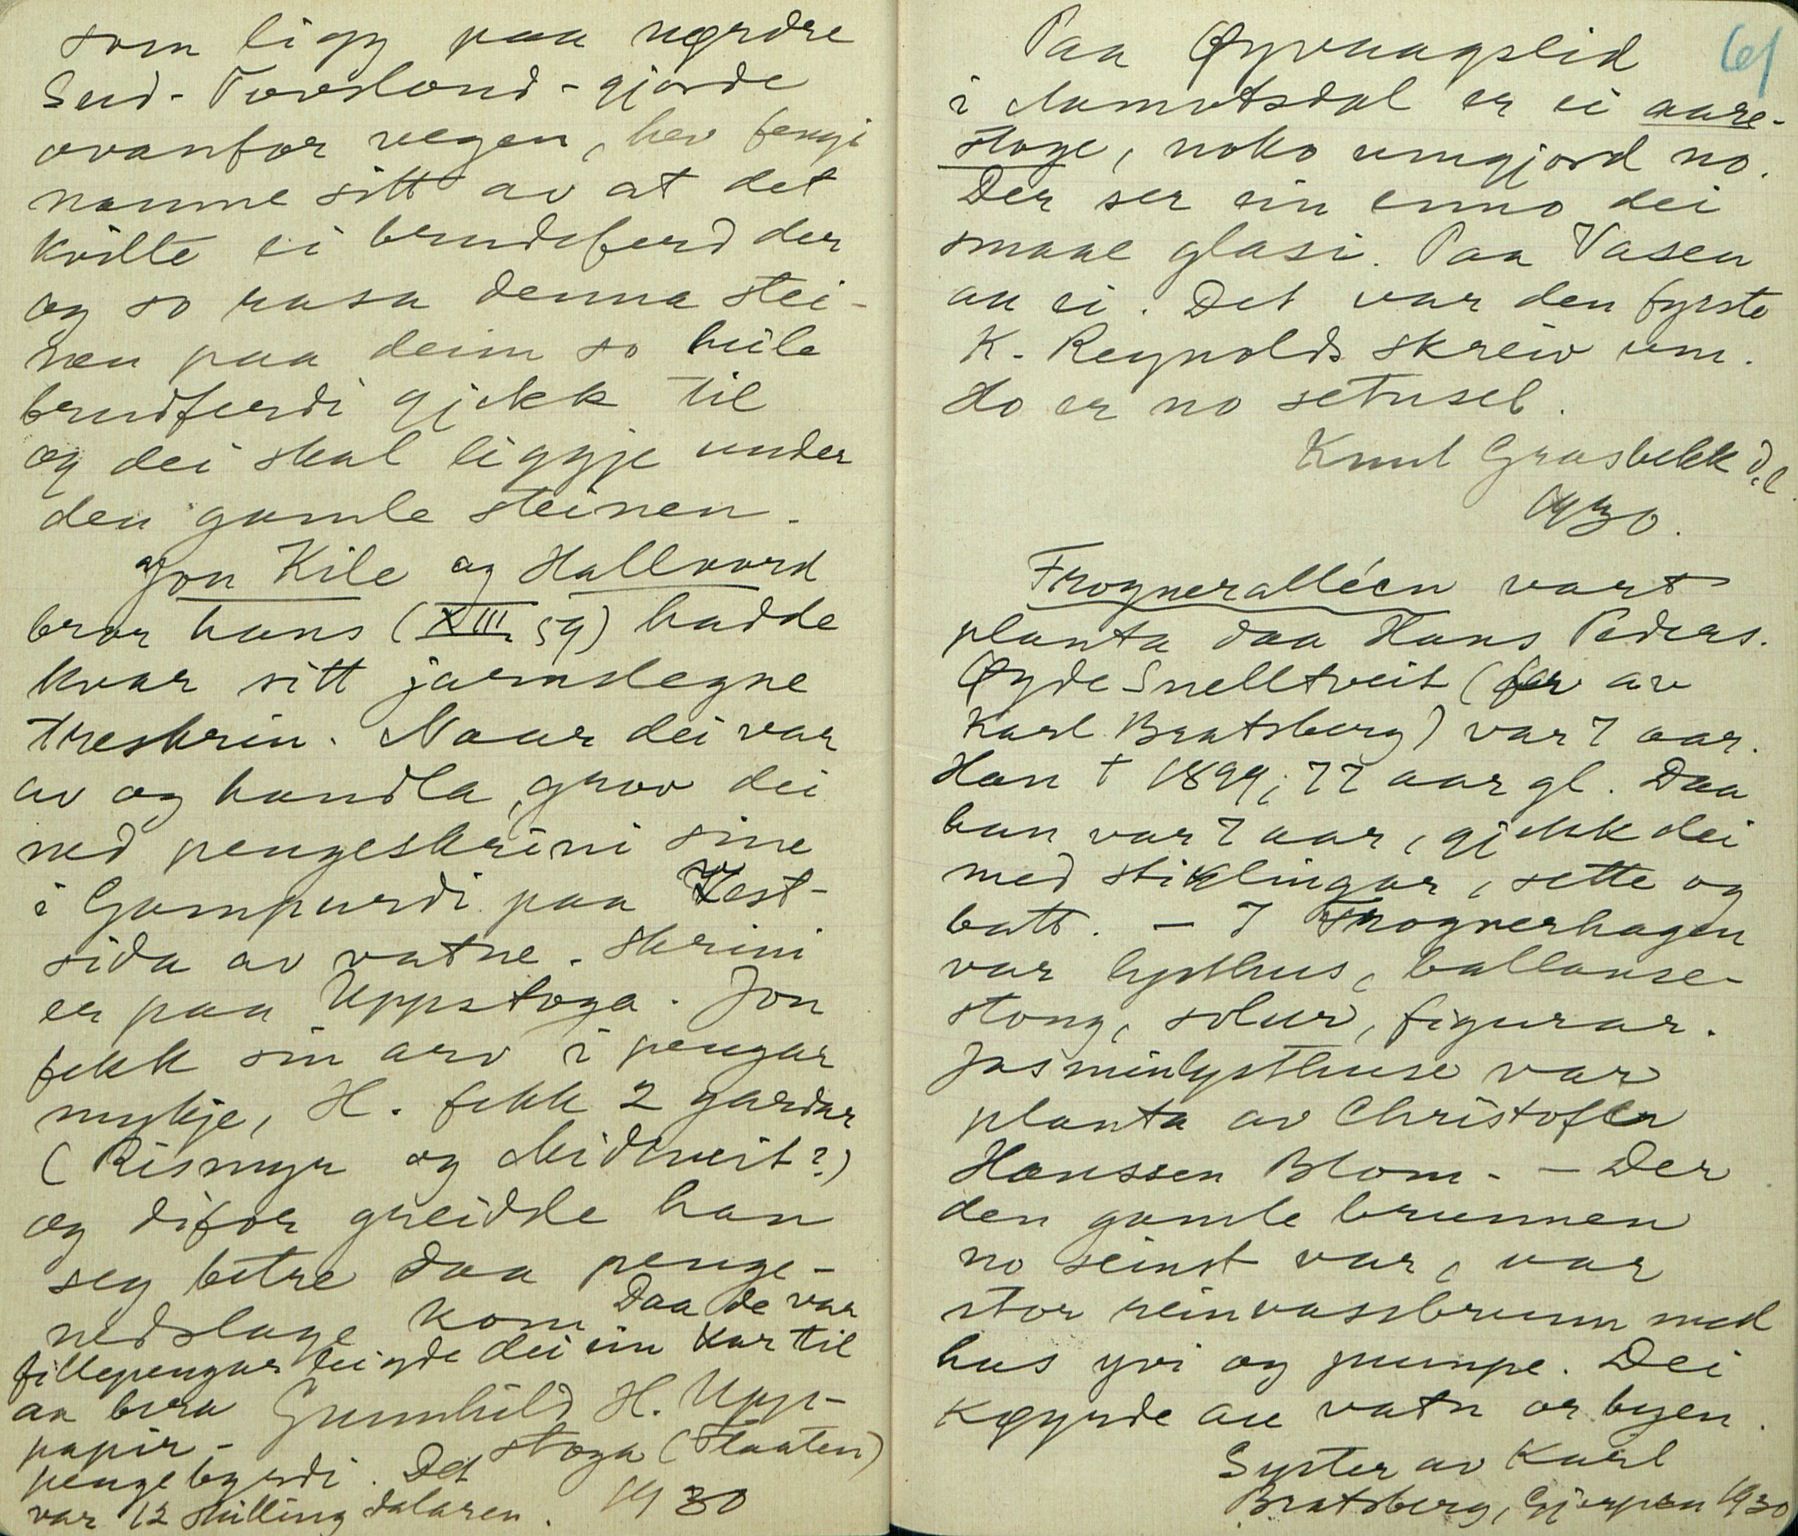 som ligg paa nørdre
Sud-Tovsland-gjorde
ovanfor vegen, hev fengi
namne sitt av at det
kvilte ei brudeferd der
og so rasa denna stei-
nen paa deim so heile
brudferdi gjekk til
og dei skal liggje under
den gamle steinen.
Jon Kile og Hallvord
bror hans (XIII 59) hadde
kvar sitt jarnslegne
treskrin. Naar dei var
av og handla, grov dei
ned pengeskrini sine
i Gampurdi paa Vest-
sida av vatne. Skrini
er paa Uppstoga. Jon
fekk sin arv i pengar
mykje, H. fekk 2 gardar
(Rismyr og Midtveit?)
og difor greidde han
seg betre daa penge-
nedslage kom. Daa de var
fillepengar leigde dei ein kar til
aa bera
papir-
pengebyrdi. Det
var 12 skilling dalaren.
Gunnhild H. Upp-
stoga (Flaaten)
1930
61
Paa Øyvaagslid
i Aamotsdal er ei aare-
stoge, noko umgjord no.
Der ser ein enno dei
smaae glasi. Paa Vasen
au ei. Det var den fyrste
K. Reynolds skreiv um.
Do er no setusel.
Knut Grasbekk d.e.
1930.
Frogneralléen vart
planta daa Hans Peders.
Øyde Snelltveit (far av
Karl Bratsberg) var 7 aar.
Han † 1899, 77 aar gl. Daa
han var 7 aar, gjekk dei
med stiklingar, sette og
batt. - I Frognerhagen
var lysthus, ballanse-
stong, solur, figurar.
Jasminlysthuse var
planta av Christoffer
Hanssen Blom. - Der
den gamle brunnen
no seinst var, var
stor reinvassbrunn med
hus yvi og pumpe. Dei
køyrde au vatn or byen.
Syster av Karl
Bratsberg, Gjerpen 1930